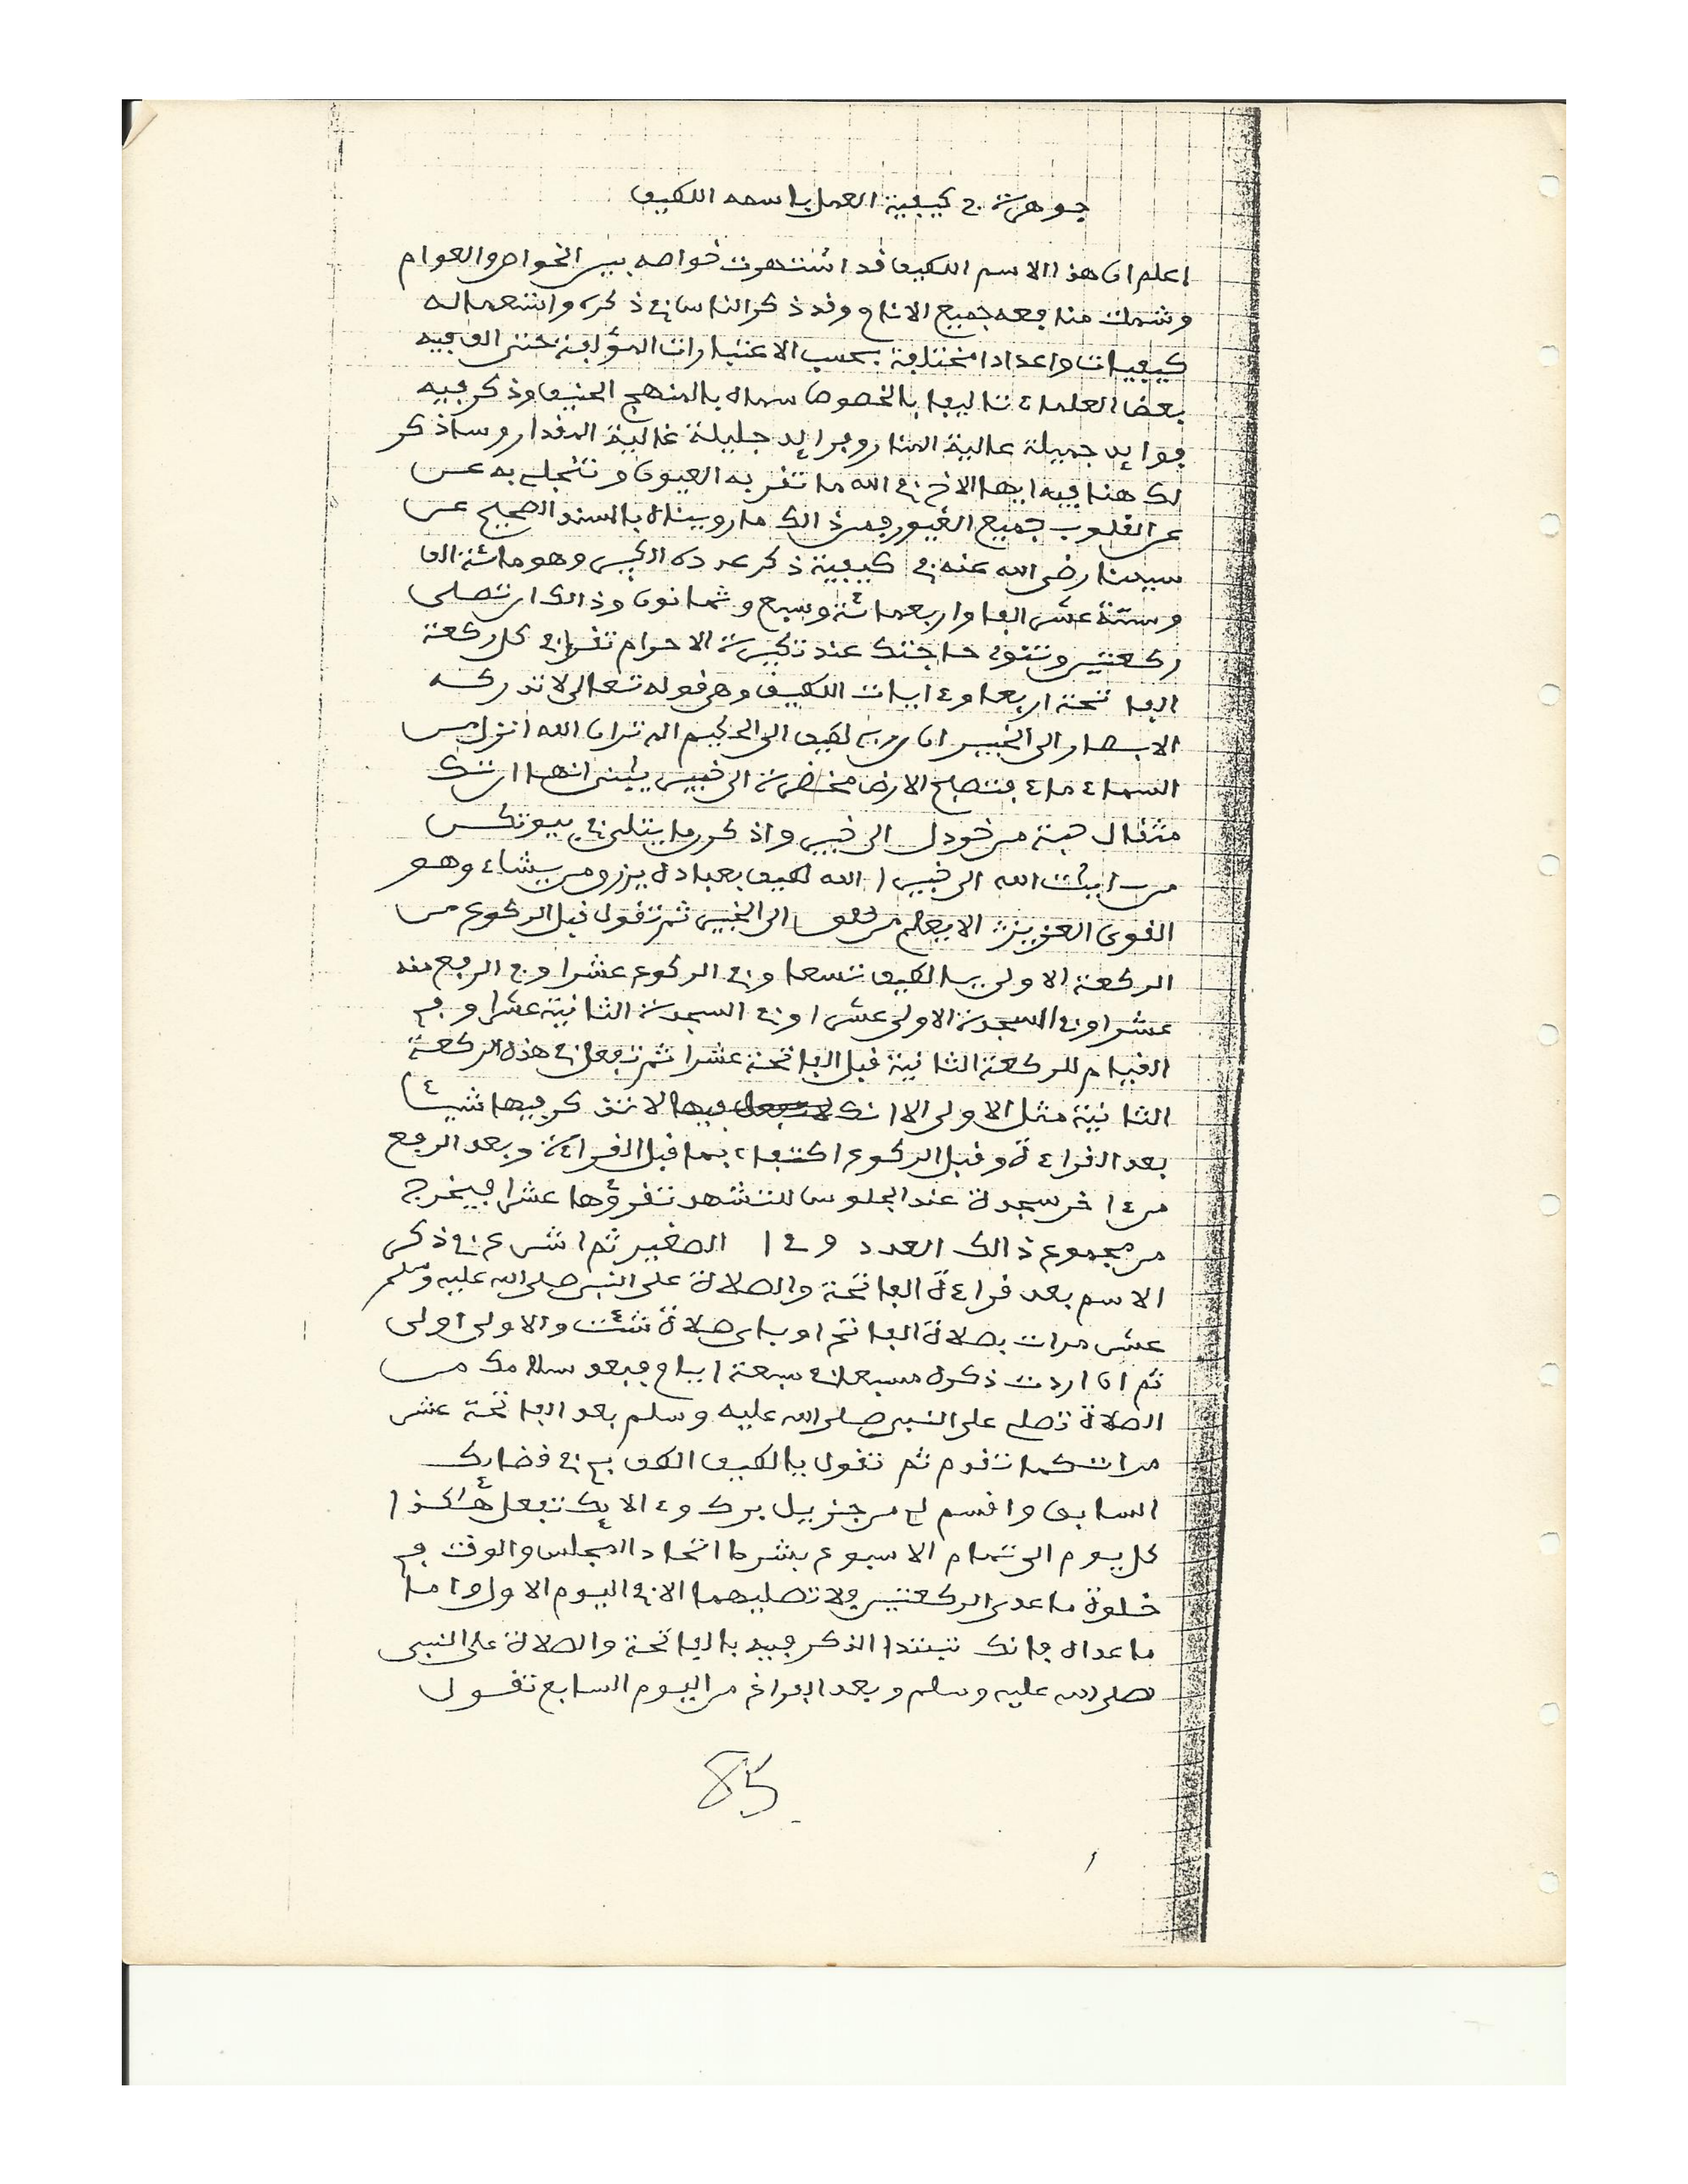 جوهرة في كيفية العمل باسمه اللطيف
اعلم ان هذا الاسم اللطيف قد اشتهرت خواصه بين الخواص والعوام
وشملت منافعه جميع الانام وقد ذكر الناس في ذكره واستعماله
كيفيات واعدادا مختلفة بحسب الاعتبارات المؤلفة حتى الف فيه
بعض العلماء تاليفا بالخصوص سماه بالمنهج الحنيف وذكر فيه
فوائد جميلة عالية المنار وفرائد جليلة غالية المقدار وساذكر
لك هنا فيه ايها الاخ في الله ما تقر به العيون وتنجلي به عن
عن القلوب جميع الغيور فمن ذالك ما رويناه بالسند الصحيح عن
سيدنا رضى الله عنه في كيفية ذكر عدده الكبير وهو مائة الف
وستة عشر الفا واربعمائة وسبع وثمانون وذالك ان تصلى
ركعتين وتنوي حاجتك عند تكبيرة الاحرام تقرا في كل ركعة
الفاتحة اربعا وءايات اللطيف وهى قوله تعالى لا تدركه
الابصار الى الخبير ان ربي لطيف الى الحكيم الم تر ان الله انزل من
السماء ماء فتصبح الارض مخضرة الى خبير يابنى انها ان تك
مثقال حبة من خردل الى خبير واذكرن ما يتلى في بيوتكن
من ءايت الله الى خبيرا الله لطيف بعباده يرزق من يشاء وهو
القوى العزيز الا يعلم من خلق الى الخبير ثم تقول قبل الركوع من
الركعة الاولى يا لطيف تسعا وفي الركوع عشرا وفي الرفع منه
عشرا وفي السجدة الاولى عشرا وفي السجدة الثانية عشرا وفي
القيام للركعة الثانية قبل الفاتحة عشرا ثم تفعل في هذه الركعة
الثانية مثل الاولى الا انك لا تذكر فيها شيئا
بعد القراءة وقبل الركوع اكتفاء بما قبل القراءة وبعد الرفع
من ءاخر سجدة عند الجلوس للتشهد تقرؤها عشرا فيخرج
من مجموع ذالك العدد الصغير ثم اشرع في ذكر
الاسم بعد قراءة الفاتحة والصلاة على النبى صلى الله عليه وسلم
عشر مرات بصلاة الفاتح او باى صلاة شئت والاولى اولى
ثم ان اردت ذكره مسبعا في سبعة ايام فبعد سلامك من
الصلاة تصلي على النبى صلى الله عليه وسلم بعد الفاتحة عشر
مرات كما تقدم ثم تقول يا لطيف الطف بي في قضائك
السابق واقسم لي من جزيل برك وءالائك تفعل هاكذا
كل يوم الى تمام الاسبوع بشرط اتحاد المجلس والوقت في
خلوة ما عدى الركعتين فلا تصليهما الا في اليوم الاول واما
ما عداه فانك تبتدا الذكر فيه بالفاتحة والصلاة على النبى
صلى الله عليه وسلم وبعد الفراغ من اليوم السابع تقول
85